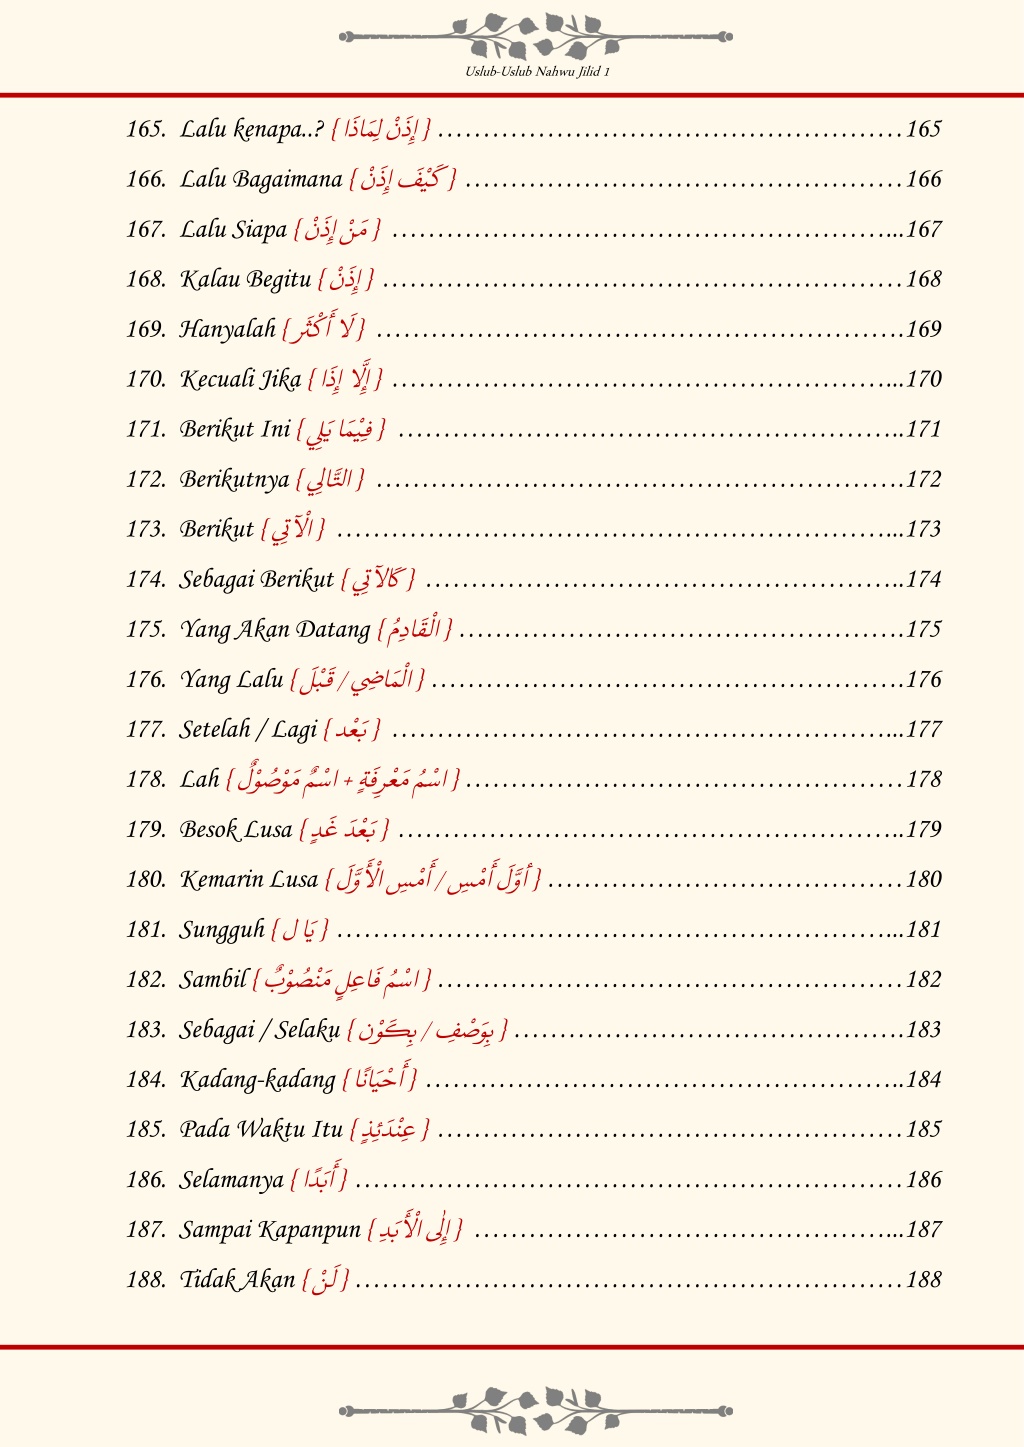 Uslub-Uslub Nahwu Jilid 1
165. Lalu kenapa..? { إِذَنْ لِمَاذَا } ............................................................165
166. Lalu Bagaimana { كَيْفَ إِذَنْ } ............................................................166
167. Lalu Siapa { مَنْ إِذَنْ } ............................................................167
168. Kalau Begitu { إِذَنْ } ............................................................168
169. Hanyalah { لَا أَكْثَر } ............................................................169
170. Kecuali Jika { إِلَّا إِذَا } ............................................................170
171. Berikut Ini { فِيْمَا يَلِي } ............................................................171
172. Berikutnya { التَّالِي } ............................................................172
173. Berikut { الْآتِي } ............................................................173
174. Sebagai Berikut { كَالآتِي } ............................................................174
175. Yang Akan Datang { الْقَادِمُ } ............................................................175
176. Yang Lalu { الْمَاضِي / قَبْلَ } ............................................................176
177. Setelah / Lagi { بَعْد } ............................................................177
178. Lah { اسْمُ مَعْرِفَةٍ + اسْمٌ مَوْصُوْلٌ } ............................................................178
179. Besok Lusa { بَعْدَ غَدٍ } ............................................................179
180. Kemarin Lusa { أوَّلَ أَمْسِ / أَمْسِ الْأَوَّلَ } ............................................................180
181. Sungguh { يَا ل } ............................................................181
182. Sambil { اسْمُ فَاعِلٍ مَنْصُوْبٌ } ............................................................182
183. Sebagai / Selaku { بِوَصْفِ / بِكَوْن } ............................................................183
184. Kadang-kadang { أَحْيَانًا } ............................................................184
185. Pada Waktu Itu { عِنْدَئِذٍ } ............................................................185
186. Selamanya { أَبَدًا } ............................................................186
187. Sampai Kapanpun { إِلٰى الْأَبَدِ } ............................................................187
188. Tidak Akan { لَنْ } ............................................................188